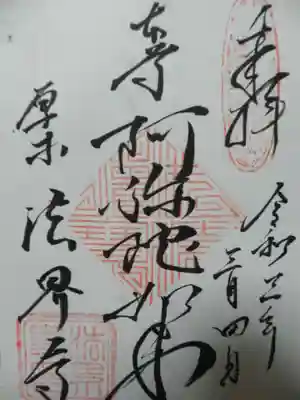 奉拝
令和三年
三月四日
本尊
阿弥陀如来
厚木
法界寺